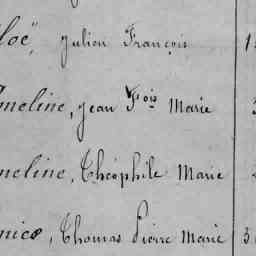 loë, Julien François 1
meline, Jean Fois Marie 3
meline, Théophile Marie 2
nico, Thomas Pierre Marie 3